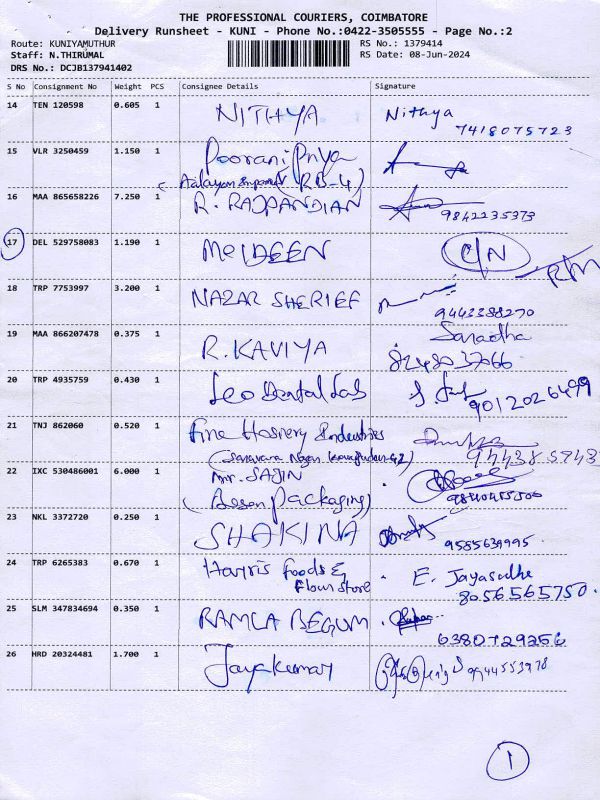 THE PROFESSIONAL COURIERS, COIMBATORE
Delivery Runsheet - KUNI - Phone No.:0422-3505555 - Page No.:2
Route: KUNIYAMUTHUR RS No.: 1379414
Staff: N.THIRUMAL RS Date: 08-Jun-2024
DRS No.: DCJB137941402
S No Consignment No Weight PCS Consignee Details Signature
14 TEN 120598 0.605 1 NITHYA Nithya
7418075723
15 VLR 3250459 1.150 1 Poorani Priya
(RB-4)
16 MAA 865658226 7.250 1 R. RAJPANDIAN 9842235373
17 DEL 529758083 1.190 1 MeIDEEN C/N
18 TRP 7753997 3.200 1 NAZAR SHERIEF
9443388270
19 MAA 866207478 0.375 1 R. KAVIYA Saradha
8248037066
20 TRP 4935759 0.430 1 Leo Dental Lab
9012026499
21 TNJ 862060 0.520 1 Fine Hosiery Industries
22 IXC 530486001 6.000 1 Mr. SAJIN
(Besson Packaging)
23 NKL 3372720 0.250 1 SHAKINA
9585639995
24 TRP 6265383 0.670 1 Harris foods & E. Jayasudhe
Flour Store 8056565750.
25 SLM 347834694 0.350 1 RAMLA BEGUM
6380729256
26 HRD 20324481 1.700 1 Jayakumar 9944553978
1